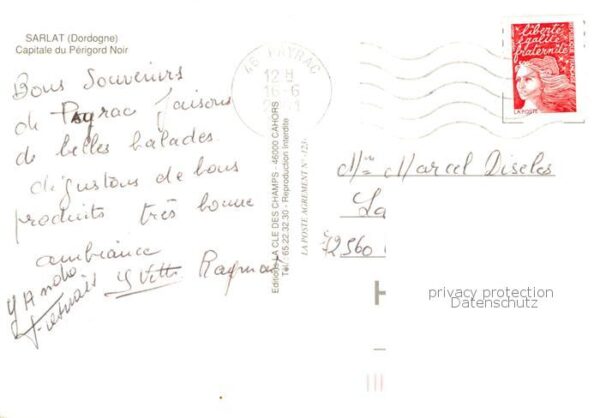 SARLAT (Dordogne)
Capitale du Périgord Noir
Bons Souvenirs
de Payrac faisons
de belles balades
dégustons de bons
produits très bonne
ambiance
Yvette Raymond
Editions LA CLE DES CHAMPS - 46000 CAHORS
Tél.: 65.22.32.30 - Reproduction Interdite
LA POSTE AGREMENT N°
46 PAYRAC
12 H
16-6
liberté
égalité
fraternité
LA POSTE
Marcel
La
72560
H
privacy protection
Datenschutz